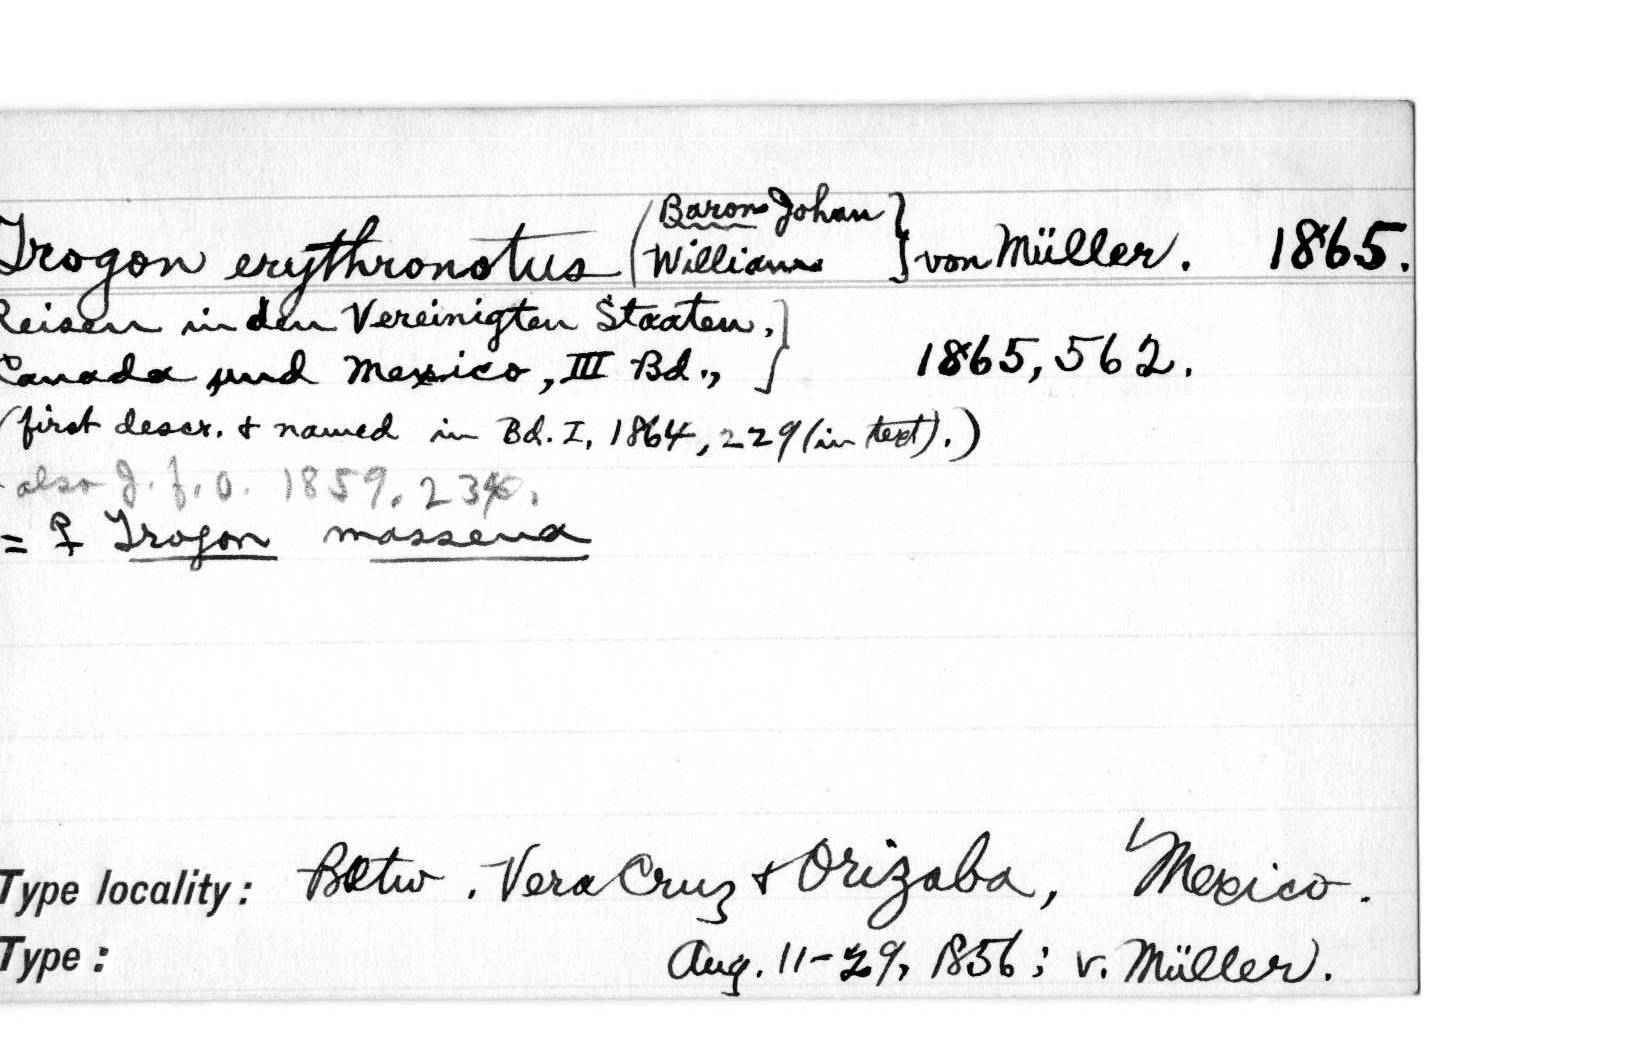 Trogon erythronotus (Baron Johan William} von Müller. 1865.
Reisen in den Vereinigten Staaten,
Canada und Mexico, III Bd., } 1865, 562.
(first descr. & named in Bd. I, 1864, 229 (in text).)
also J. f. O. 1859.
= ♀ Trogon massena
Type locality: Betw. Vera Cruz & Orizaba, Mexico.
Type: Aug. 11-29, 1856; v. Müller.